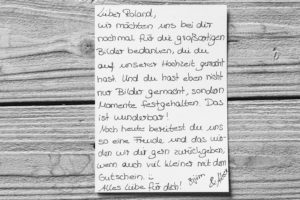 Lieber Roland,
wir möchten uns bei dir
nochmal für die großartigen
Bilder bedanken, die du
auf unserer Hochzeit gemacht
hast. Und du hast eben nicht
nur Bilder gemacht, sondern
Momente festgehalten. Das
ist wunderbar!
Noch heute bereitest du uns
so eine Freude und das wür-
den wir dir gern zurückgeben,
wenn auch viel kleiner mit dem
Gutschein.
Alles Liebe für dich! Björn &